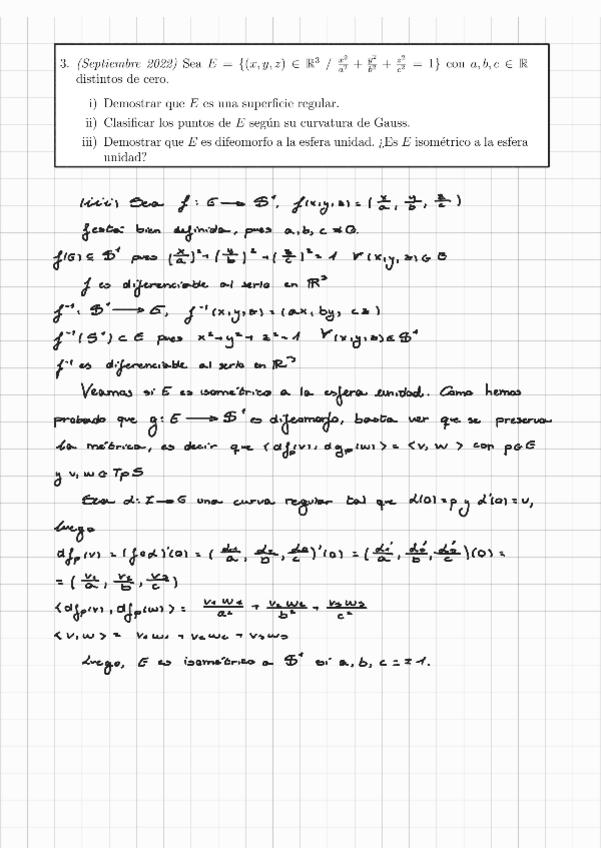 3. (Septiembre 2022) Sea E = {(x, y, z) ∈ ℝ³ / x²/a² + y²/b² + z²/c² = 1} con a, b, c ∈ ℝ
distintos de cero.
i) Demostrar que E es una superficie regular.
ii) Clasificar los puntos de E según su curvatura de Gauss.
iii) Demostrar que E es difeomorfo a la esfera unidad. ¿Es E isométrico a la esfera
unidad?
iii) Sea f: E → S¹, f(x,y,z) = (x/a, y/b, z/c)
f está bien definida, pues a, b, c ≠ 0.
f(E) ⊆ S¹ pues (x/a)² + (y/b)² + (z/c)² = 1 ∀(x,y,z) ∈ E
f es diferenciable al serlo en ℝ³
f⁻¹: S¹ → E, f⁻¹(x,y,z) = (ax, by, cz)
f⁻¹(S¹) ⊂ E pues x² + y² + z² = 1 ∀(x,y,z) ∈ S¹
f⁻¹ es diferenciable al serlo en ℝ³
Veamos si E es isométrico a la esfera unidad. Como hemos
probado que g: E → S¹ es difeomorfo, basta ver que se preserva
la métrica, es decir que <dfp(v), dgp(w)> = <v, w> con p ∈ E
y v, w ∈ TpS
Sea α: I → E una curva regular tal que α(0) = p y α'(0) = v,
luego
dfp(v) = (f∘α)'(0) = (α₁/a, α₂/b, α₃/c)'(0) = (α₁'/a, α₂'/b, α₃'/c)(0) =
= (v₁/a, v₂/b, v₃/c)
<dfp(v), dfp(w)> = v₁w₁/a² + v₂w₂/b² + v₃w₃/c²
<v, w> = v₁w₁ + v₂w₂ + v₃w₃
Luego, E es isométrico a S¹ si a, b, c = ±1.